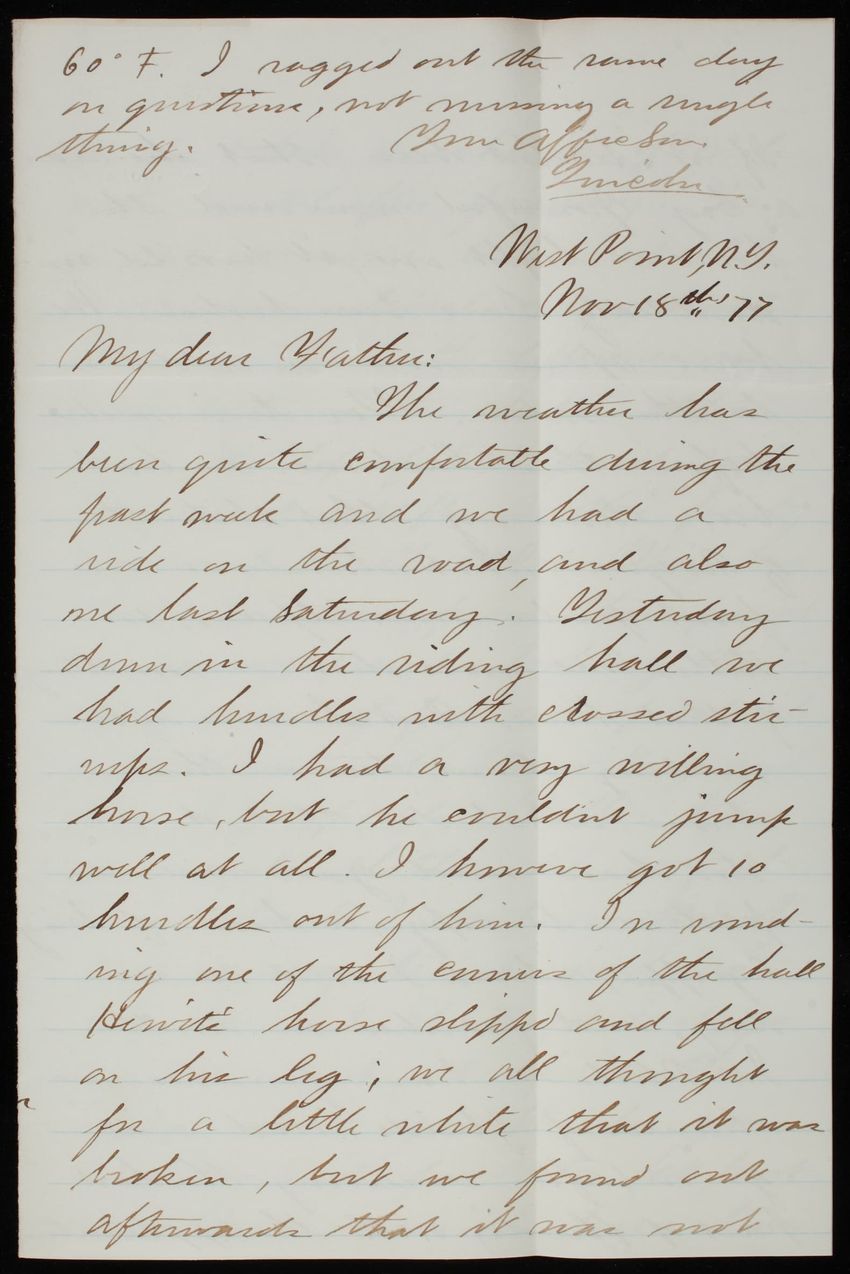 60° F. I ragged out the same day
on questions, not missing a single
thing. Your Affec Son.
Lincoln
West Point, N.Y.
Nov 18th '77
My dear Father:
The weather has
been quite comfortable during the
past week and we had a
ride on the road, and also
one last Saturday. Yesterday
down in the riding hall we
had hurdles with crossed stir-
rups. I had a very willing
horse, but he couldnt jump
well at all. I however got 10
hurdles out of him. In round-
ing one of the corners of the hall
horse slipp'd and fell
on his leg; we all thought
for a little while that it was
broken, but we found out
afterwards that it was not